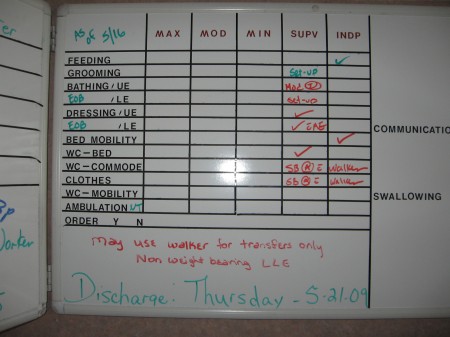 As of 5/16 MAX MOD MIN SUPV INDP
FEEDING ✓
GROOMING Set-up
BATHING/UE Mod I
EOB /LE set-up
DRESSING/UE ✓
EOB /LE ✓ AE
BED MOBILITY ✓
WC-BED ✓
WC-COMMODE SBA walker
CLOTHES SBA walker
WC-MOBILITY
AMBULATION
ORDER Y N
COMMUNICATIO
SWALLOWING
May use walker for transfers only
Non weight bearing LLE
Discharge: Thursday - 5.21.09